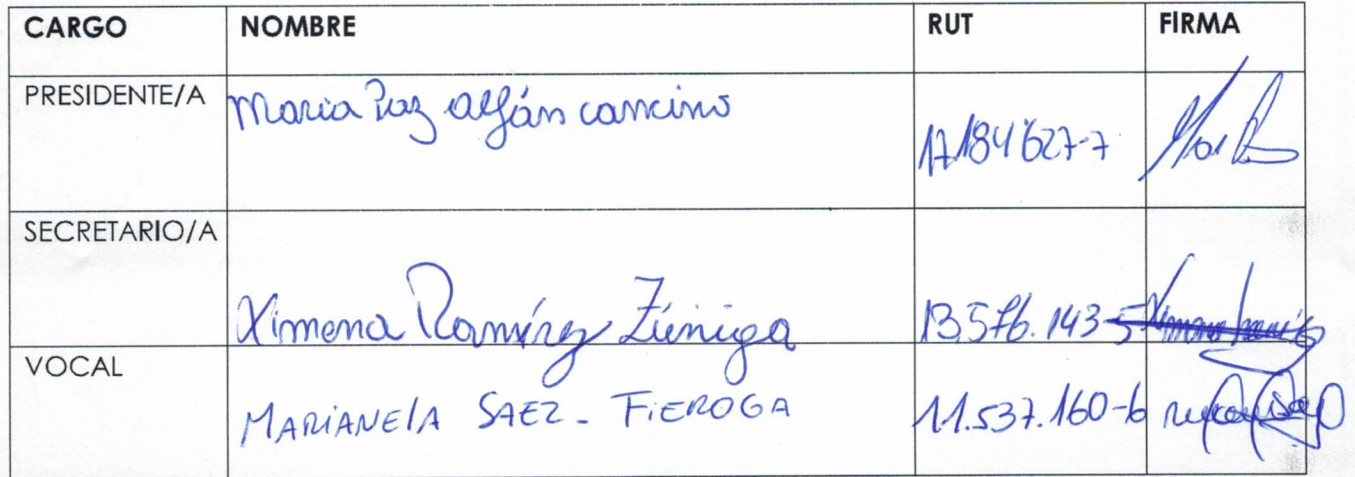 CARGO NOMBRE RUT FIRMA
PRESIDENTE/A Maria Paz alfán cancino 17.184627-7
SECRETARIO/A Ximena Ramírez Zúniga 13.576.143-5
VOCAL MARIANElA SAEZ - FiEROGA 11.537.160-6